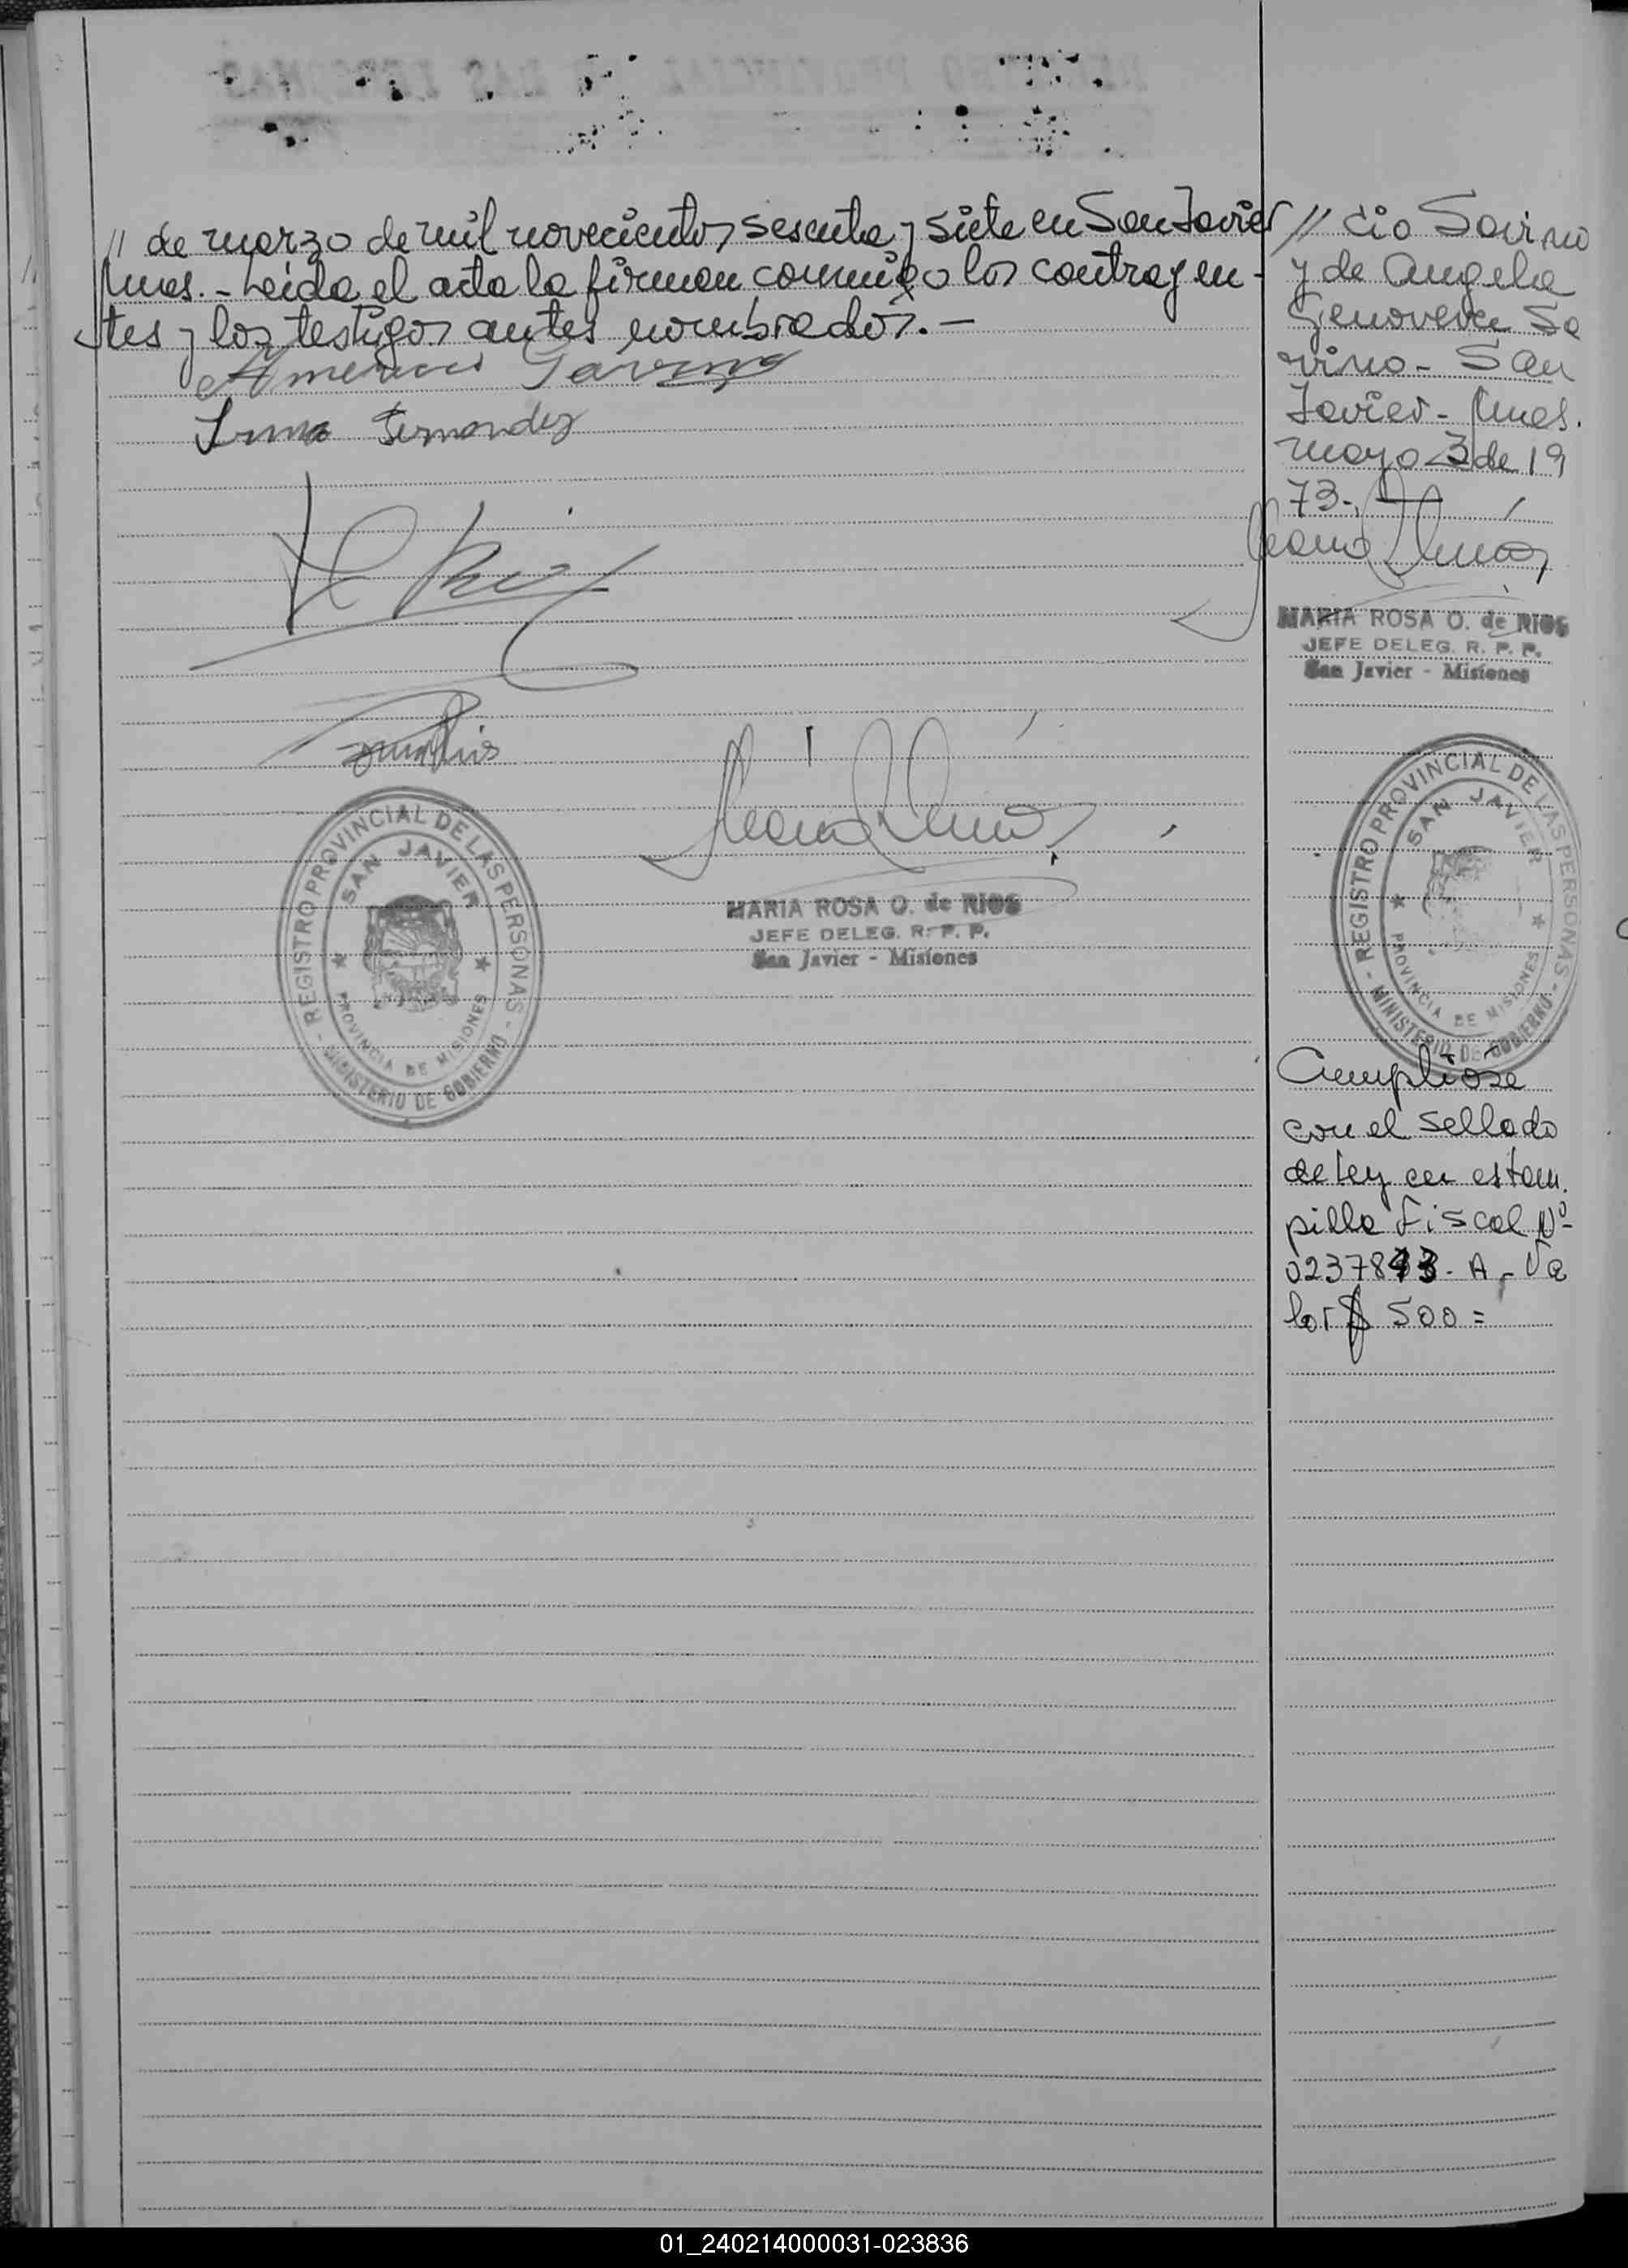 // de marzo de mil novecientos sesenta y siete en San Javier
Mnes.- Leida el acta la firman conmigo los contrayen-
tes y los testigos antes nombrados.-
Americo Savino
Irma Fernandez
MARIA ROSA O. de RIOS
JEFE DELEG. R. P. P.
San Javier - Misiones
REGISTRO PROVINCIAL DE LAS PERSONAS
SAN JAVIER
PROVINCIA DE MISIONES
MINISTERIO DE GOBIERNO
// cio Savino
y de Angela
Genoveva Sa
vino- San
Javier- Mnes.
mayo 3 de 19
73-
MARIA ROSA O. de RIOS
JEFE DELEG. R. P. P.
San Javier - Misiones
REGISTRO PROVINCIAL DE LAS PERSONAS
SAN JAVIER
PROVINCIA DE MISIONES
MINISTERIO DE GOBIERNO
Cumplióse
con el sellado
de ley en estam.
pilla fiscal Nº
- A - Va
lor $ 500 =
01_240214000031-023836